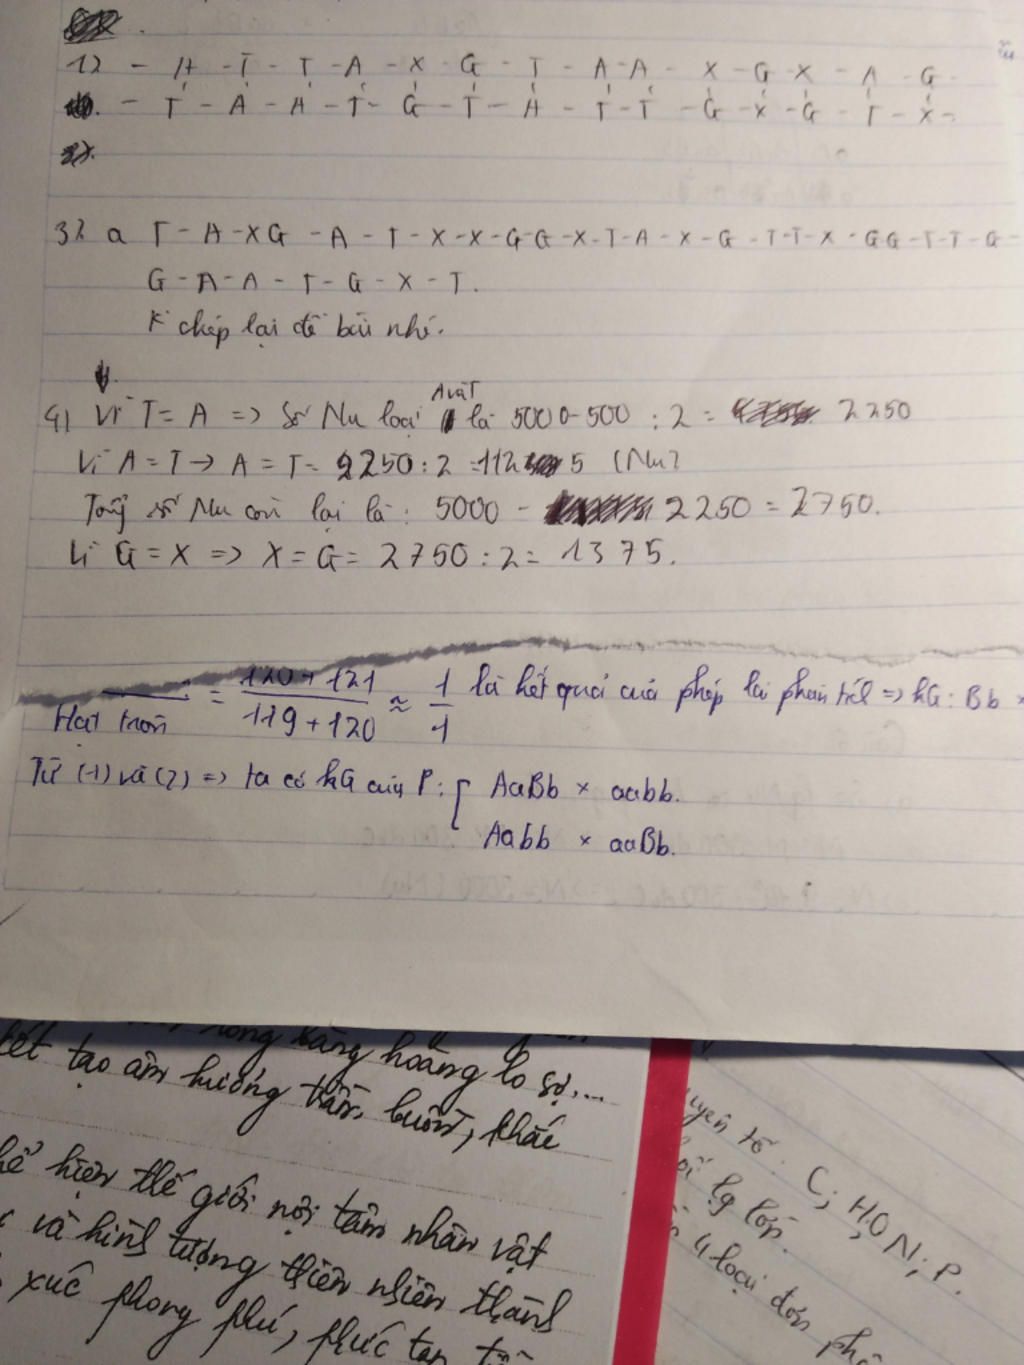 1) - A - T - T - A - X - G - T - A - A - X - G - X - A - G -
- T - A - A - T - G - T - A - T - T - G - X - G - T - X -
3) a T - A - X G - A - T - X - X - G G - X - T - A - X - G - T - T - X - G G - T - T - G -
G - A - A - T - G - X - T.
K chép lại đề bài nhé.
4) Vì T = A => Số Nu loại A và T là 5000 - 500 : 2 = 2250
Vì A = T → A = T = 2250 : 2 = 1125 (Nu)
Tổng số Nu còn lại là : 5000 - 2250 = 2750.
Vì G = X => X = G = 2750 : 2 = 1375.
= 120 + 121 / 119 + 120 ≈ 1 / 1 là kết quả của phép lai phân tích => kG : Bb ×
Hạt trơn
Từ (1) và (2) => ta có kG của P : { AaBb × aabb.
Aabb × aaBb.
bàng hoàng lo sợ...
tạo âm hưởng trầm, buồn, khắc
hiện thế giới nội tâm nhân vật
và hình tượng thiên nhiên thành
xúc phong phú, phức tạp
tố : C, H, O, N, P.
lg lớn.
4 loại đơn phân